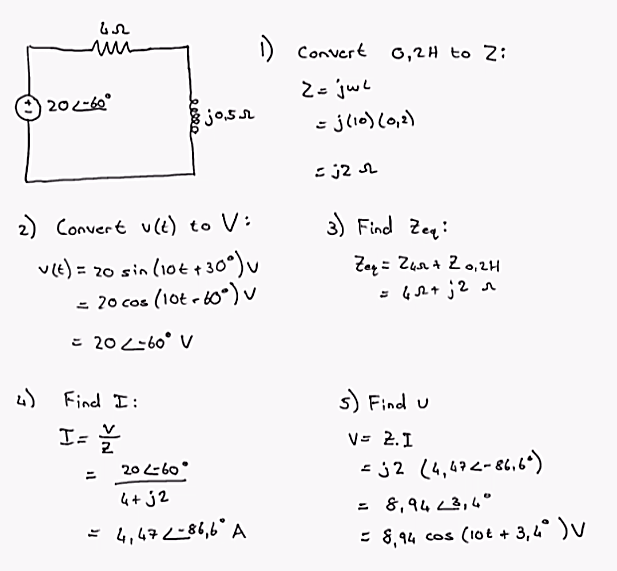 4Ω
20∠-60°
j0,5Ω
1) Convert 0,2H to Z:
Z = jωL
= j(10)(0,2)
= j2 Ω
2) Convert v(t) to V:
v(t) = 20 sin (10t + 30°) V
= 20 cos (10t - 60°) V
= 20∠-60° V
3) Find Zeq:
Zeq = Z4Ω + Z0,2H
= 4Ω + j2 Ω
4) Find I:
I = V/Z
= 20∠-60° / 4 + j2
= 4,47∠-86,6° A
5) Find v
V = Z.I
= j2 (4,47∠-86,6°)
= 8,94∠3,4°
= 8,94 cos (10t + 3,4°) V